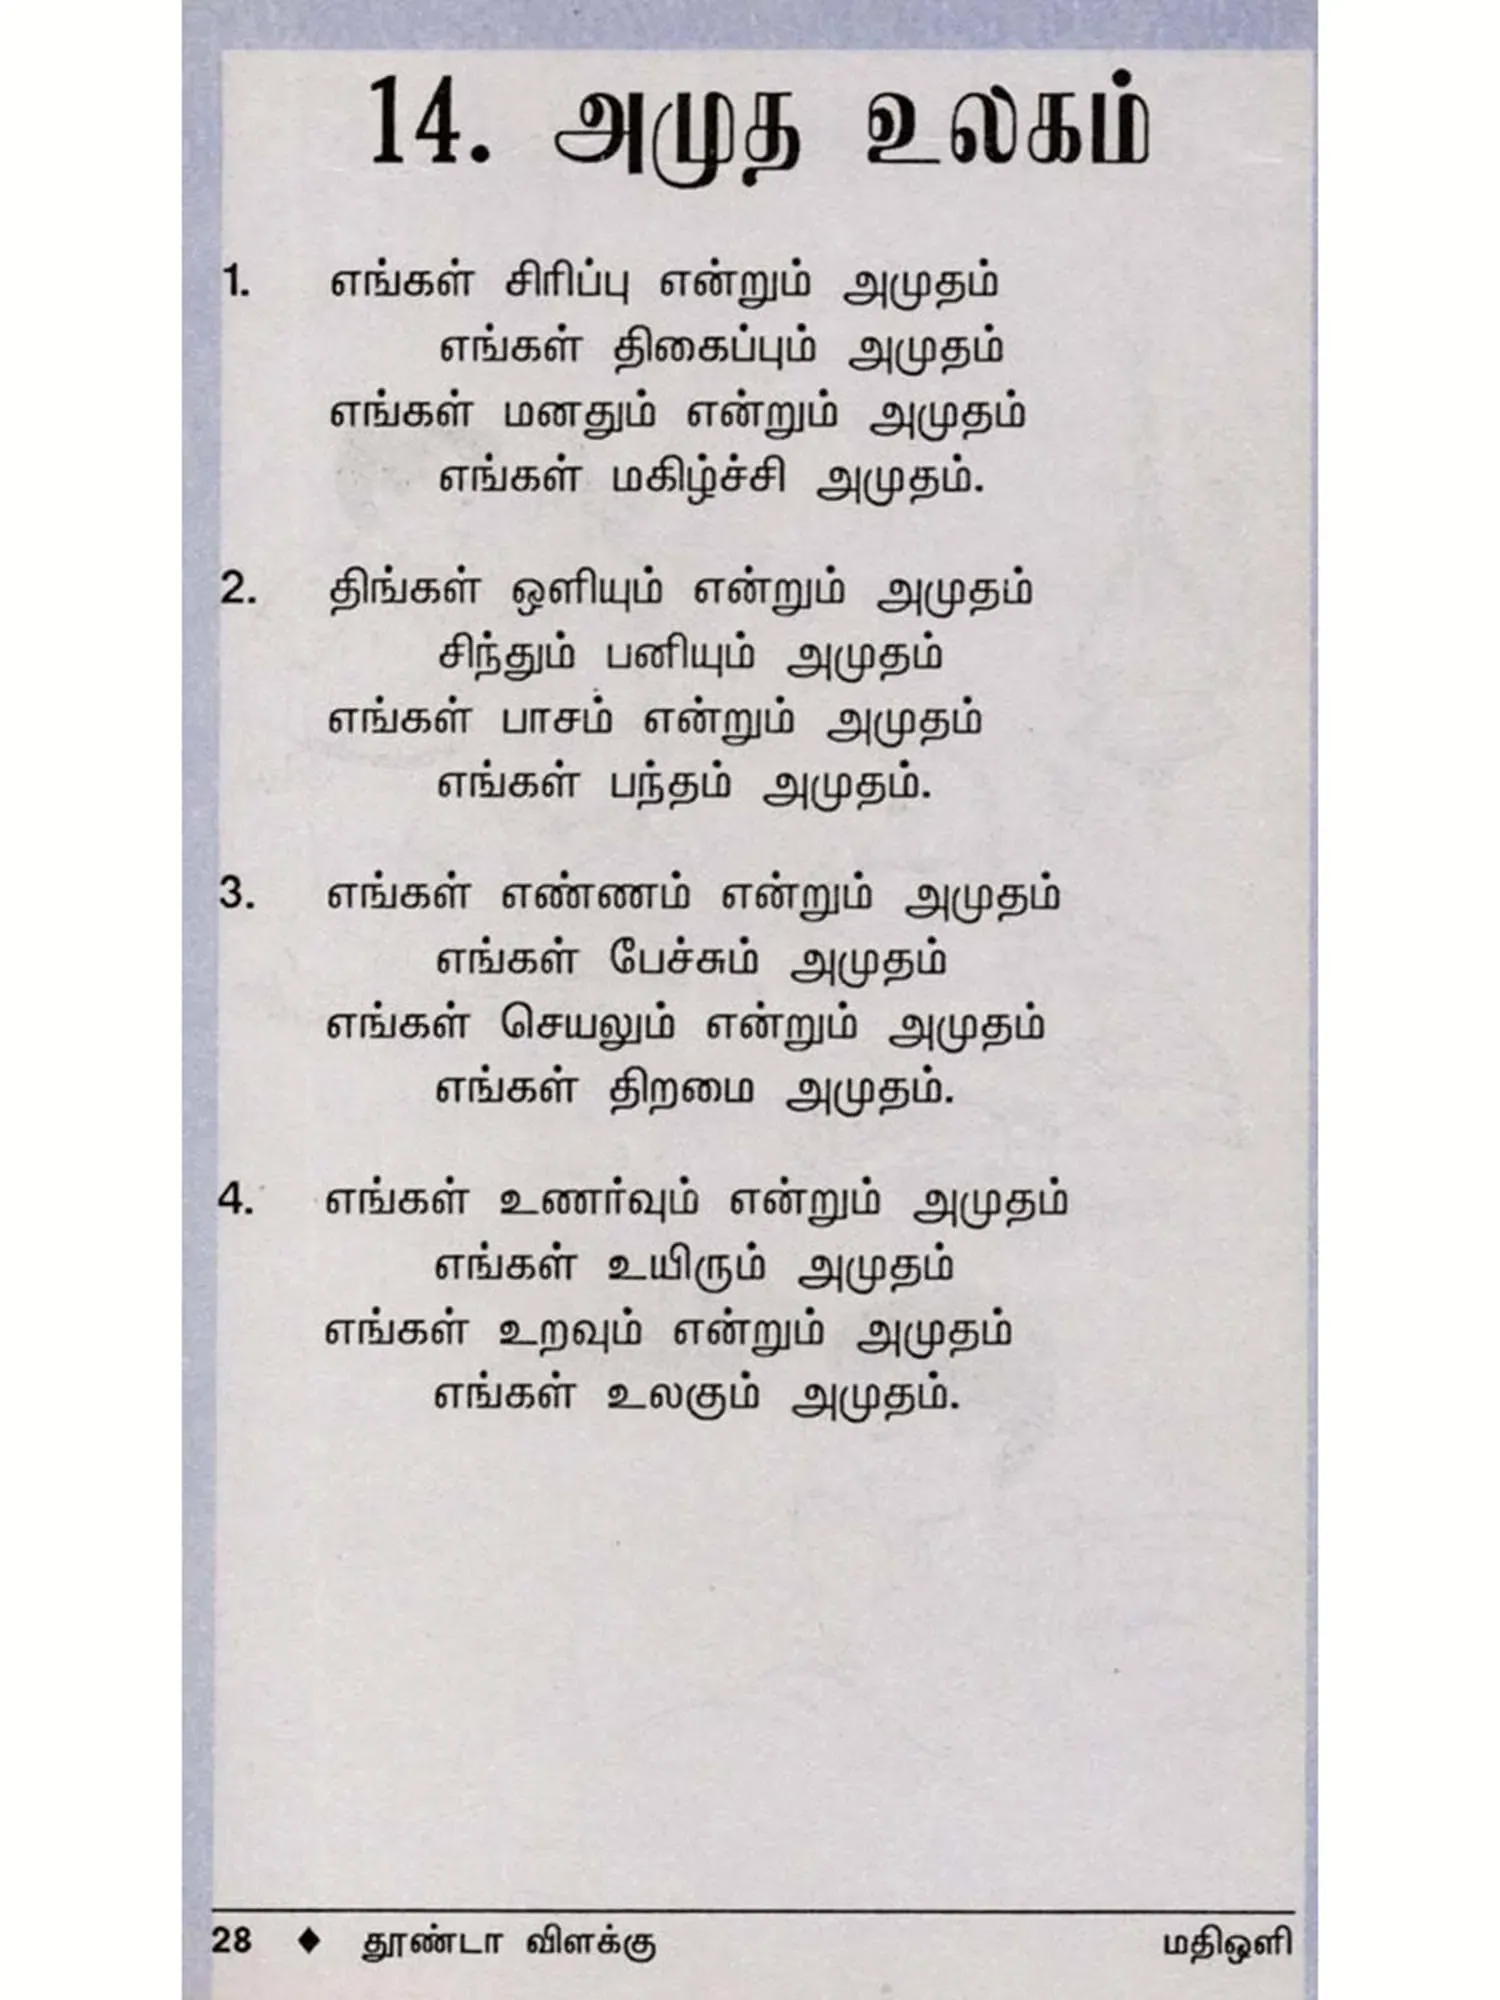 14. அமுத உலகம்
1. எங்கள் சிரிப்பு என்றும் அமுதம்
எங்கள் திகைப்பும் அமுதம்
எங்கள் மனதும் என்றும் அமுதம்
எங்கள் மகிழ்ச்சி அமுதம்.
2. திங்கள் ஒளியும் என்றும் அமுதம்
சிந்தும் பனியும் அமுதம்
எங்கள் பாசம் என்றும் அமுதம்
எங்கள் பந்தம் அமுதம்.
3. எங்கள் எண்ணம் என்றும் அமுதம்
எங்கள் பேச்சும் அமுதம்
எங்கள் செயலும் என்றும் அமுதம்
எங்கள் திறமை அமுதம்.
4. எங்கள் உணர்வும் என்றும் அமுதம்
எங்கள் உயிரும் அமுதம்
எங்கள் உறவும் என்றும் அமுதம்
எங்கள் உலகும் அமுதம்.
28 ♦ தூண்டா விளக்கு மதிஒளி